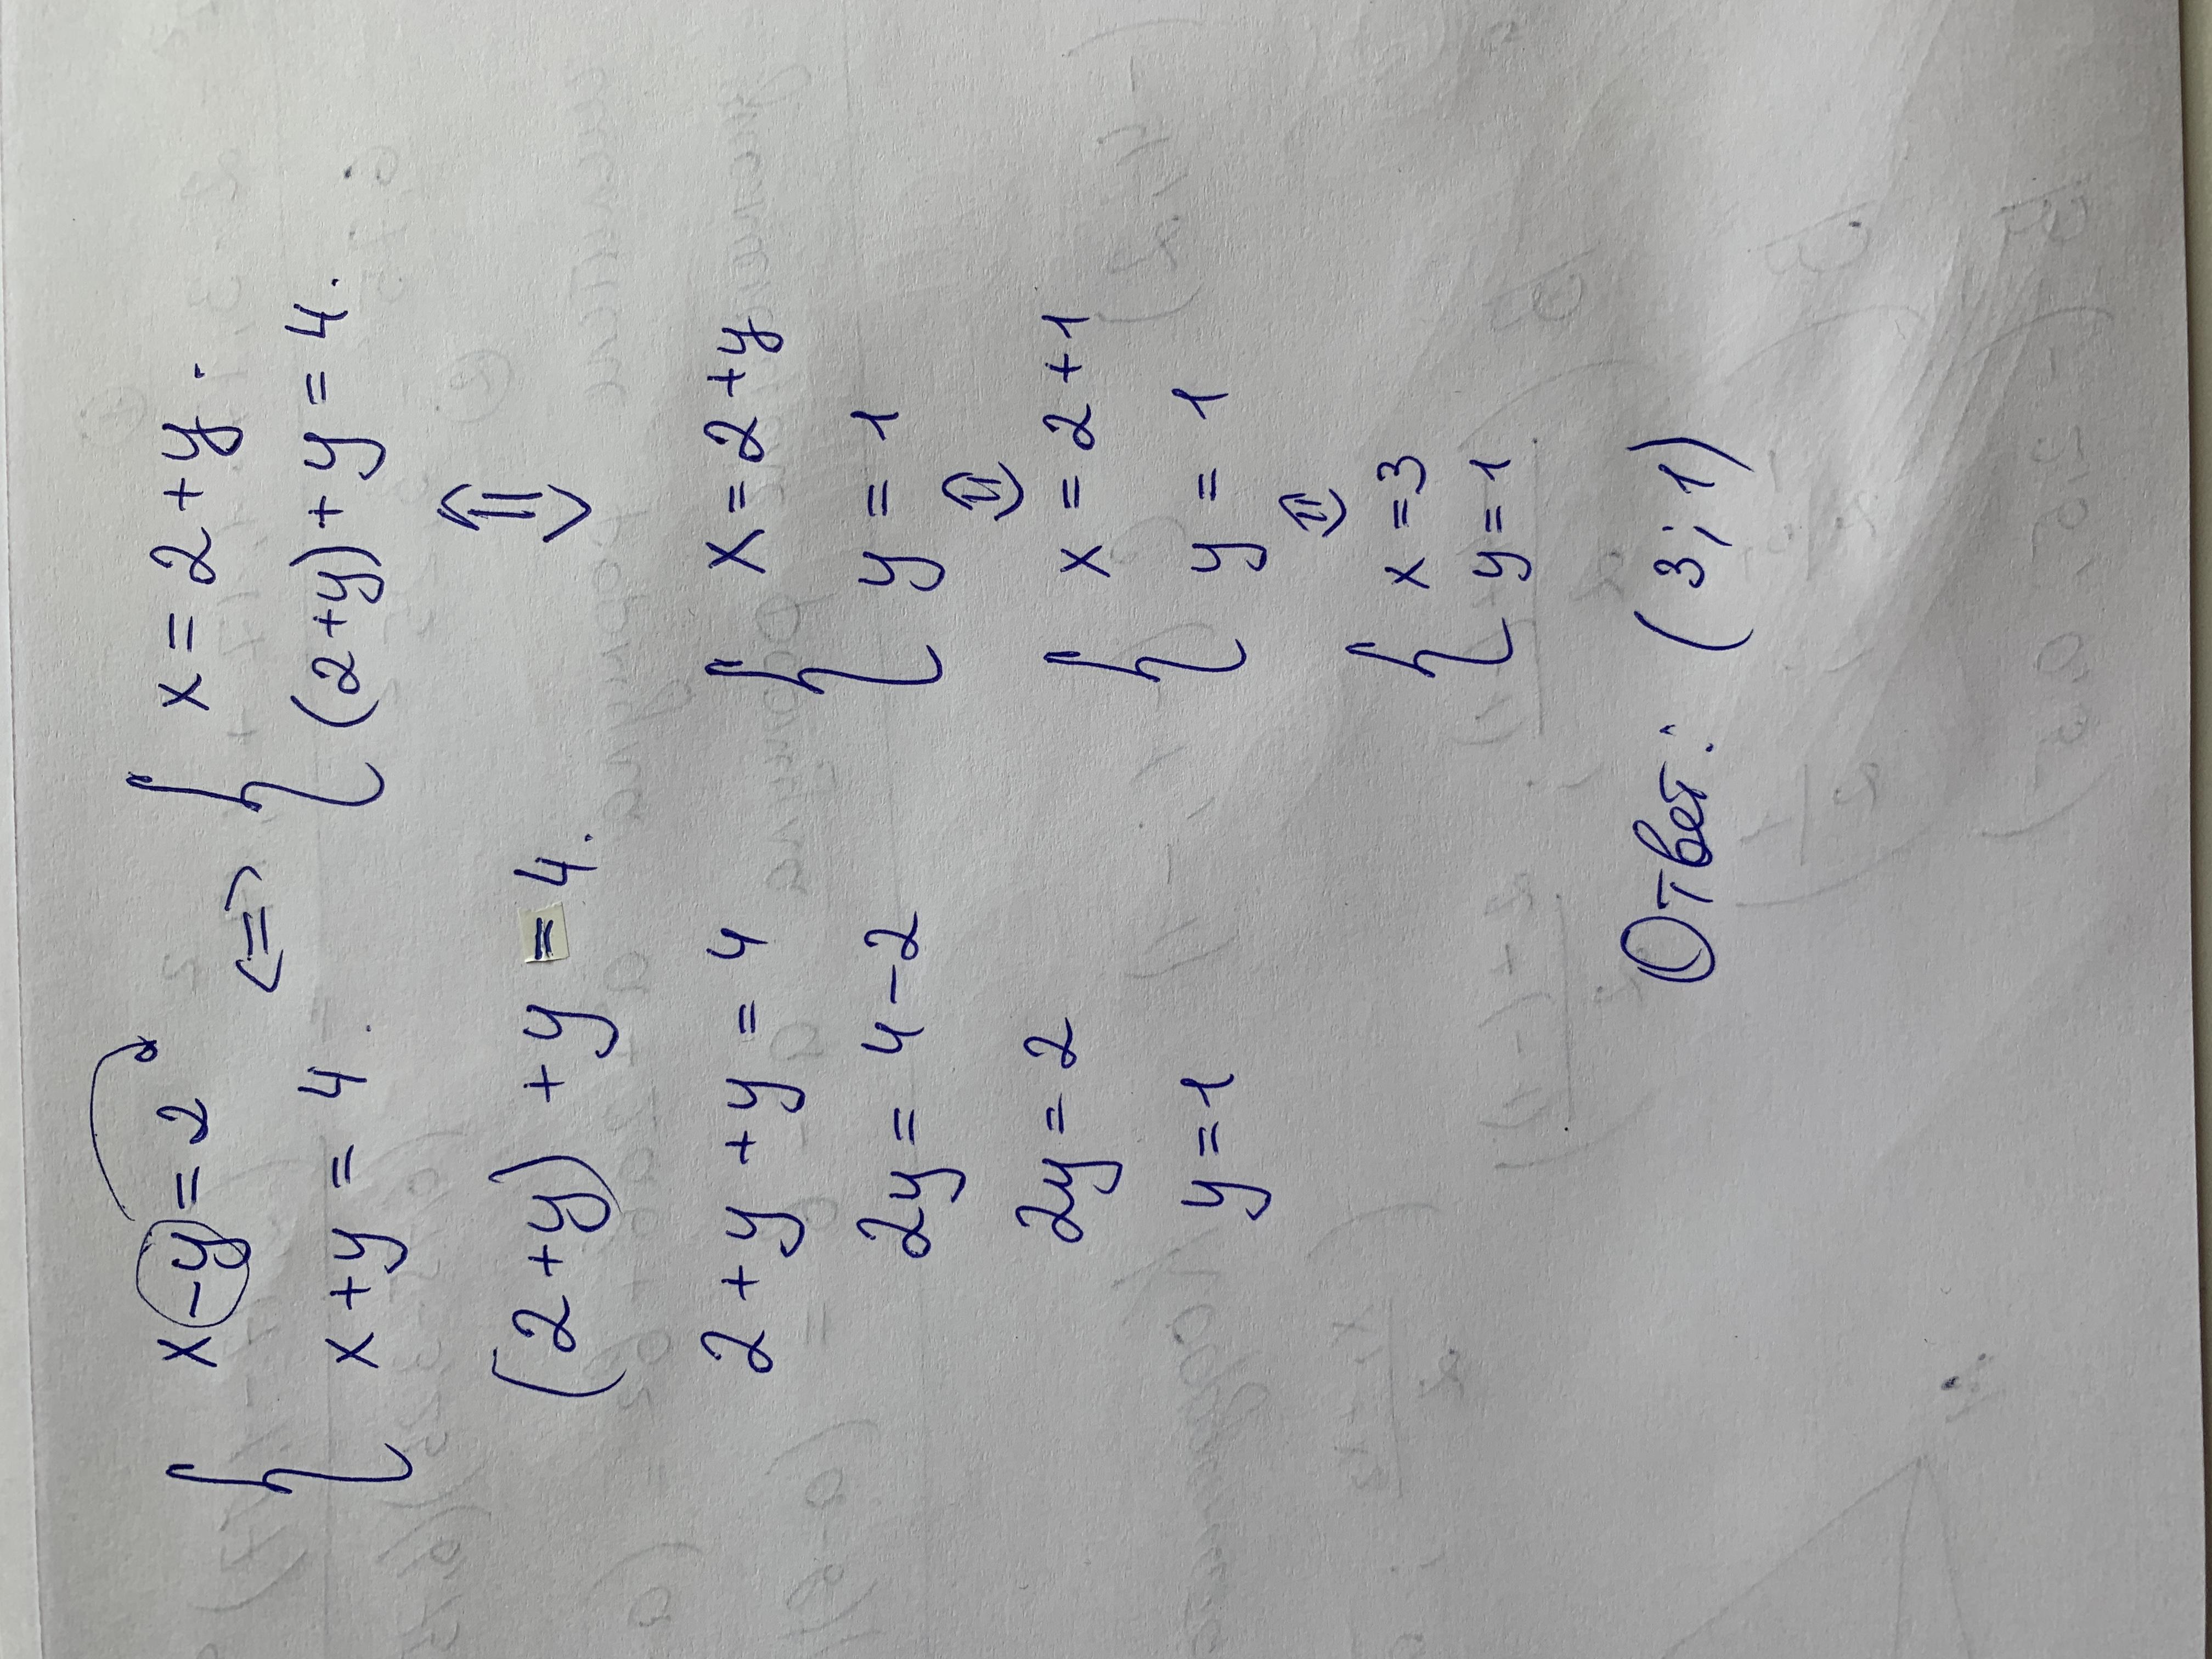 { x - y = 2 <=> { x = 2 + y.
x + y = 4. (2 + y) + y = 4.
(2 + y) + y = 4.
2 + y + y = 4
2y = 4 - 2
2y = 2
y = 1
<=>
{ x = 2 + y
y = 1
<=>
{ x = 2 + 1
y = 1
<=>
{ x = 3
y = 1
Ответ: (3; 1)